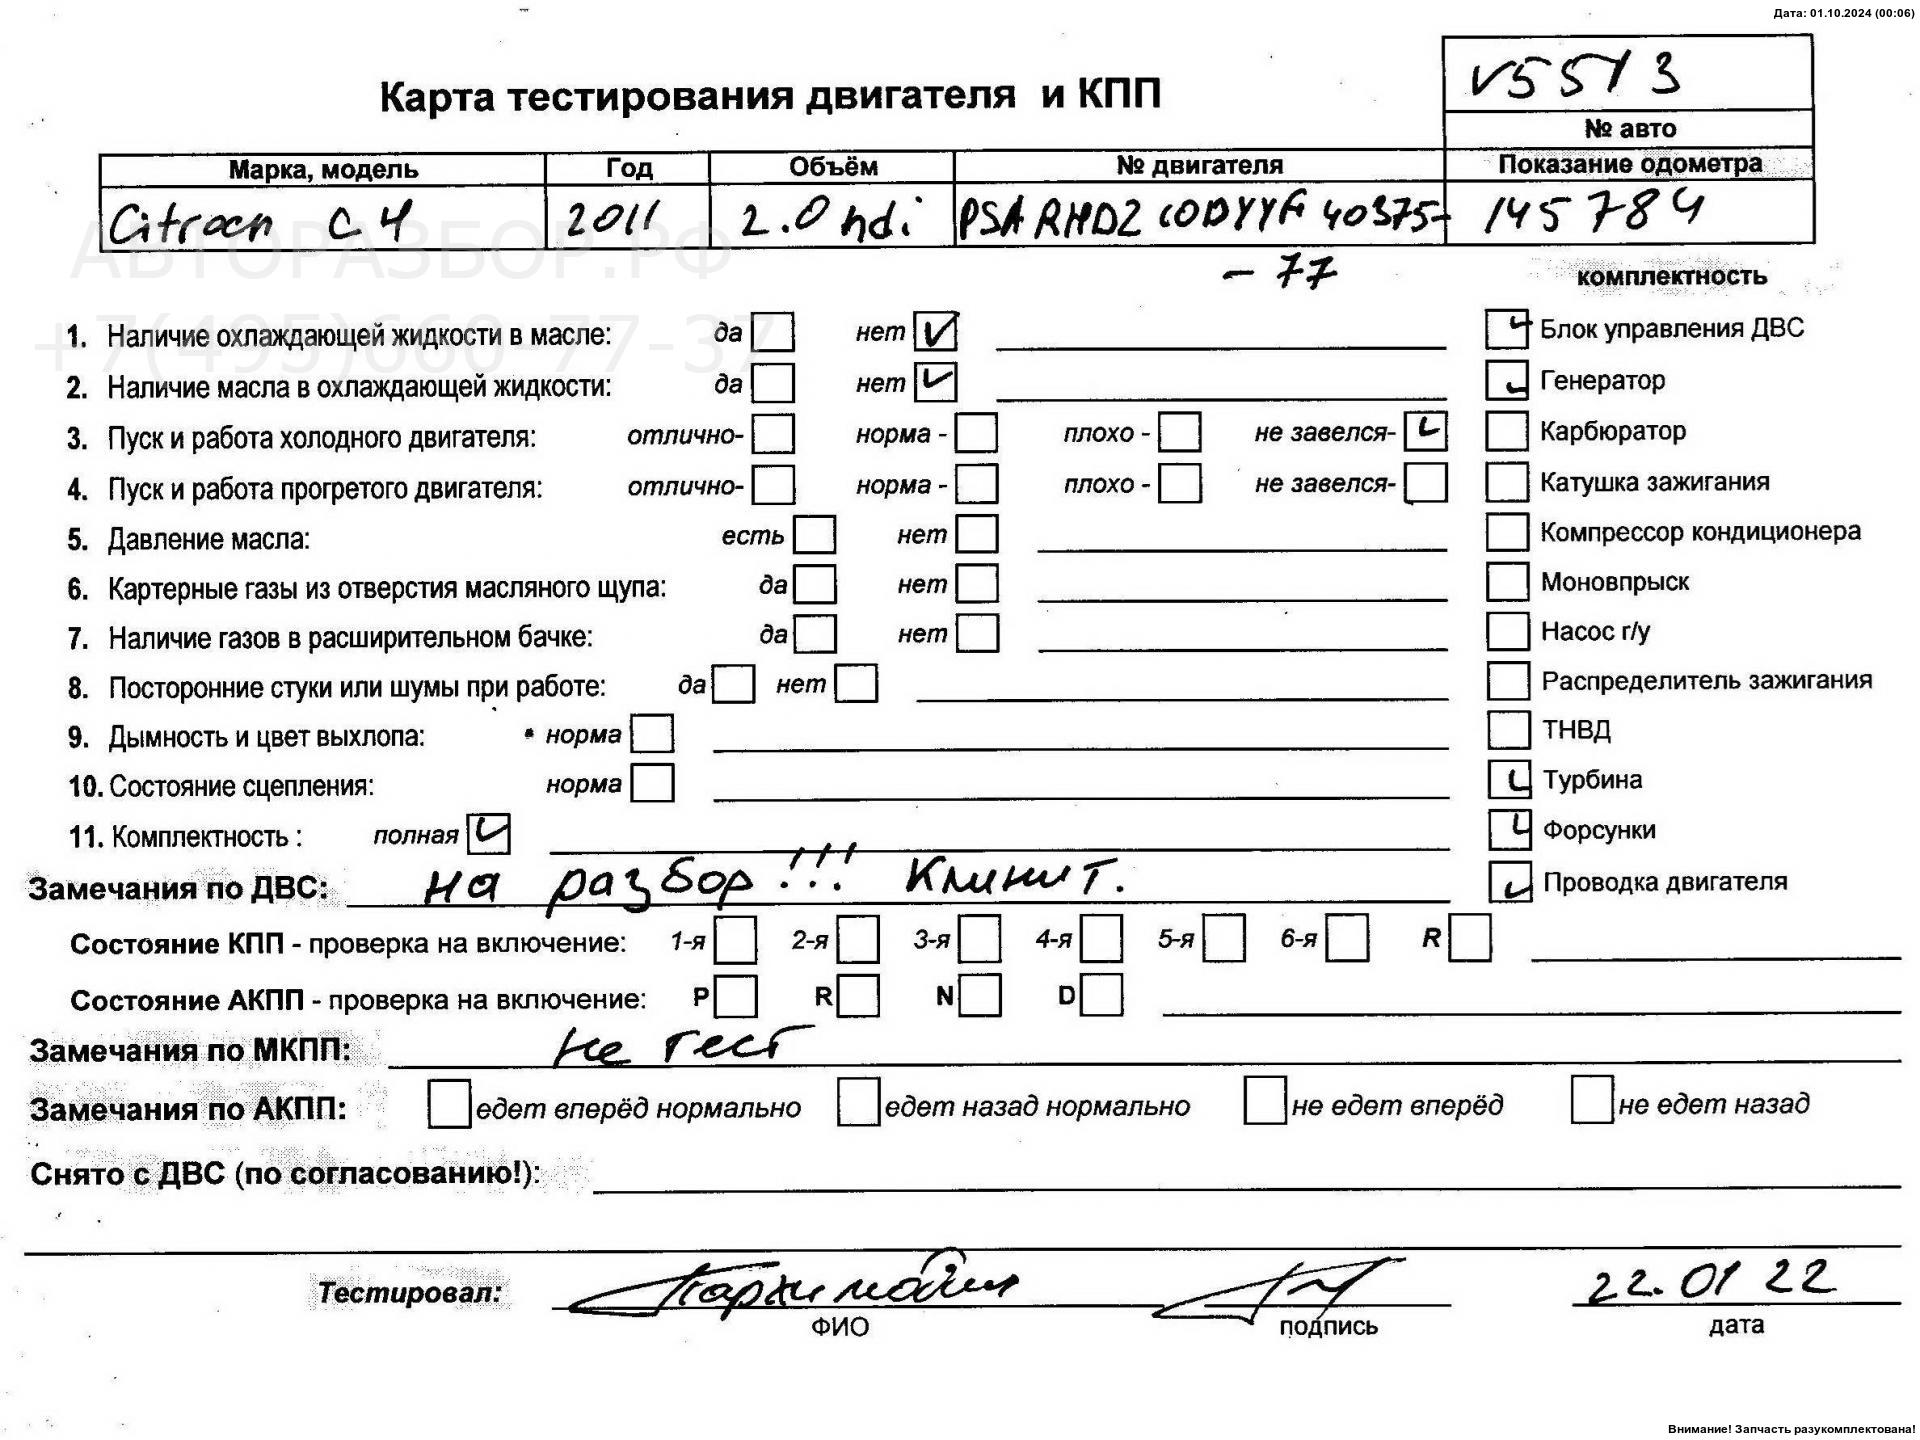 Дата: 01.10.2024 (00:06)
V5513
Карта тестирования двигателя и КПП
№ авто
Марка, модель Год Объём № двигателя Показание одометра
Citroen C4 2011 2.0 hdi PSA RHD2 10DYYF 40375- 145784
- 77
АВТОРАЗБОР.РФ
+7(495)660-77-37
комплектность
1. Наличие охлаждающей жидкости в масле: да нет Блок управления ДВС
2. Наличие масла в охлаждающей жидкости: да нет Генератор
3. Пуск и работа холодного двигателя: отлично- норма - плохо - не завелся- Карбюратор
4. Пуск и работа прогретого двигателя: отлично- норма - плохо - не завелся- Катушка зажигания
5. Давление масла: есть нет Компрессор кондиционера
6. Картерные газы из отверстия масляного щупа: да нет Моновпрыск
7. Наличие газов в расширительном бачке: да нет Насос г/у
8. Посторонние стуки или шумы при работе: да нет Распределитель зажигания
9. Дымность и цвет выхлопа: норма ТНВД
10. Состояние сцепления: норма Турбина
11. Комплектность : полная Форсунки
Замечания по ДВС: на разбор!!! Клинит. Проводка двигателя
Состояние КПП - проверка на включение: 1-я 2-я 3-я 4-я 5-я 6-я R
Состояние АКПП - проверка на включение: P R N D
Замечания по МКПП: не тест
Замечания по АКПП: едет вперёд нормально едет назад нормально не едет вперёд не едет назад
Снято с ДВС (по согласованию!):
Тестировал: 22.01 22
ФИО подпись дата
Внимание! Запчасть разукомплектована!